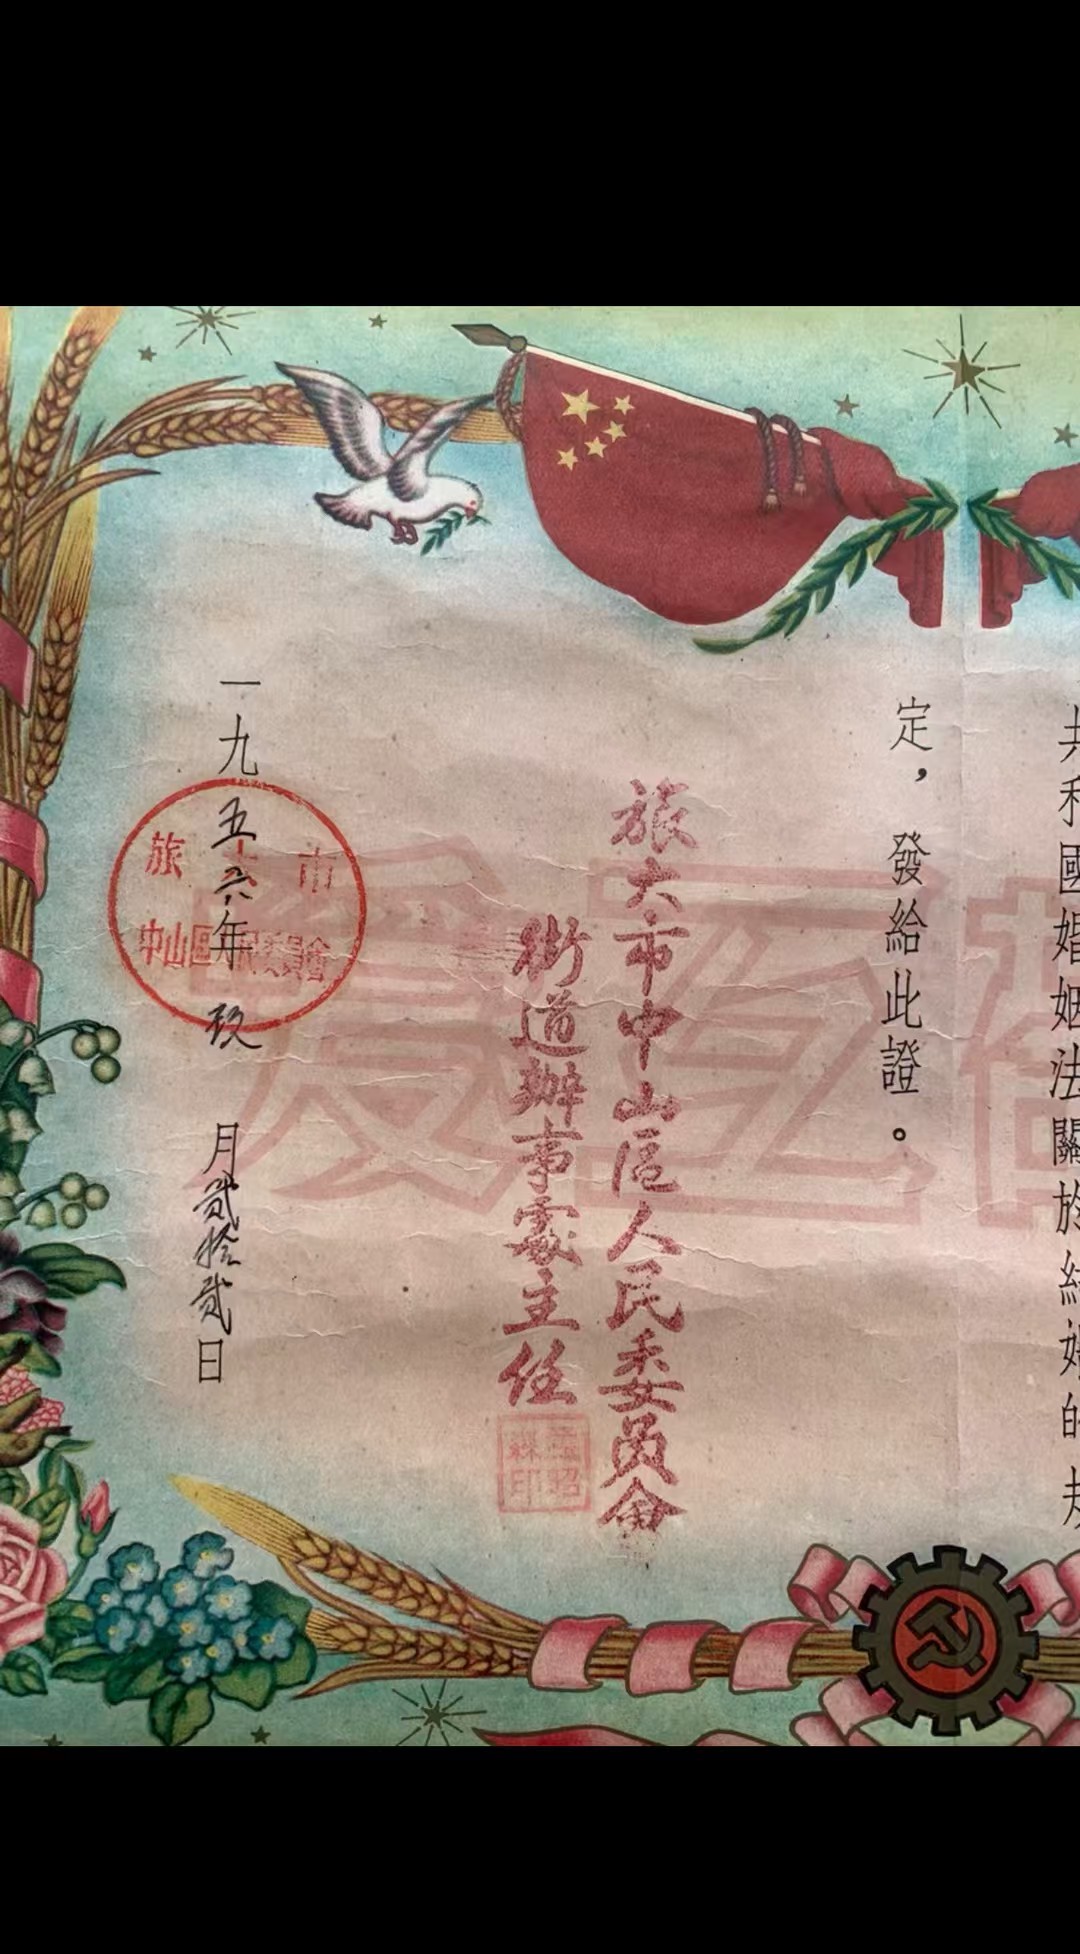 共和國婚姻法關於結婚的規
定，發給此證。
旅大市中山區人民委員會
街道辦事處主任
一九五六年玖月貳拾貳日
旅大市
中山區人民委員會
互
愛